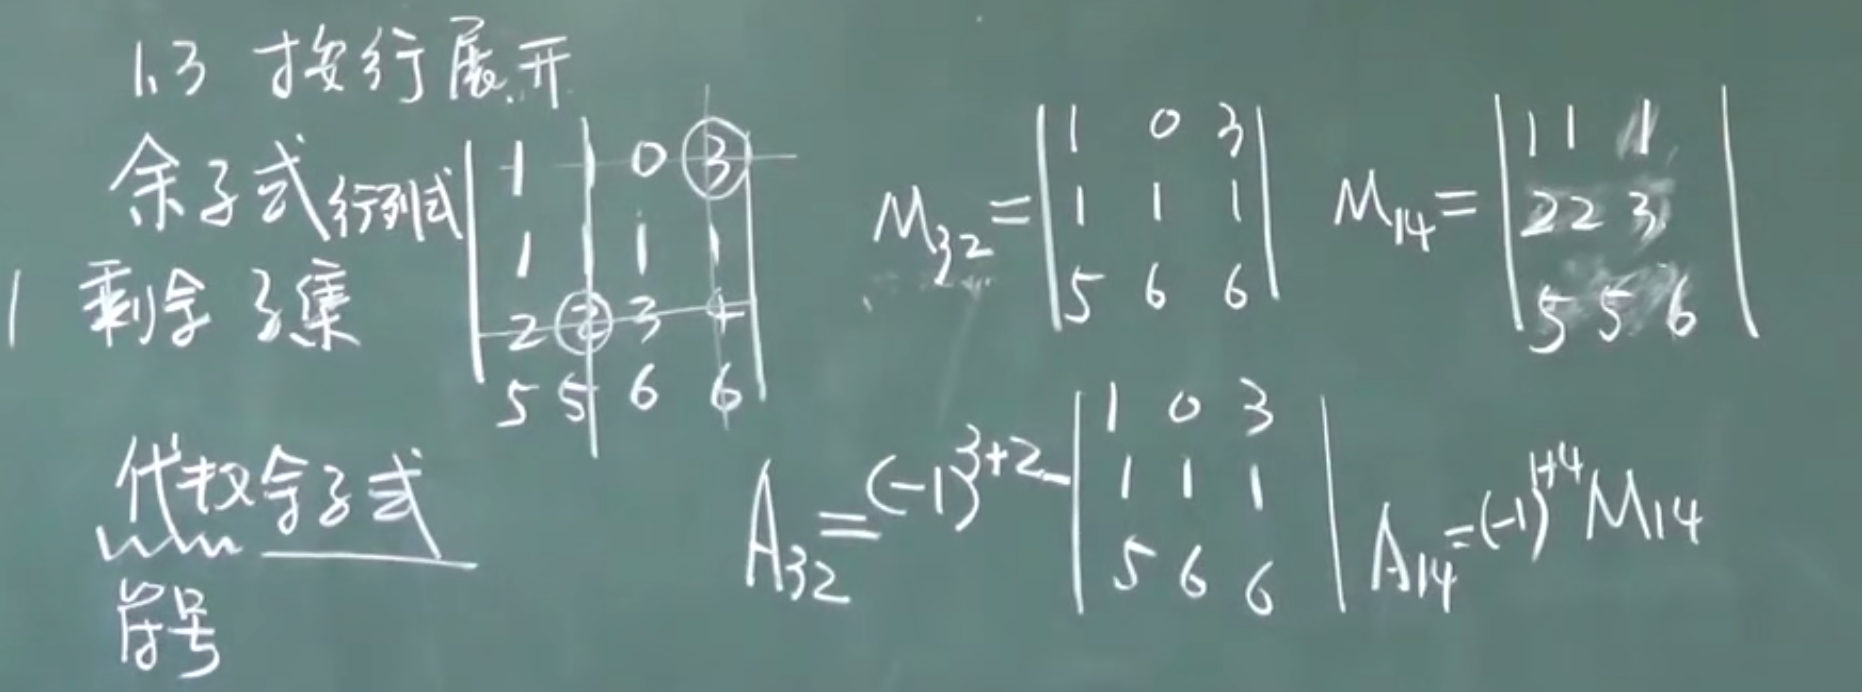 1.3 按行展开
余子式 行列式
剩余子集
| 1 1 0 3 |
| 1 1 1 1 |
| 2 2 3 4 |
| 5 5 6 6 |
M32 = | 1 0 3 |
| 1 1 1 |
| 5 6 6 |
M14 = | 1 1 1 |
| 2 2 3 |
| 5 5 6 |
代数余子式
符号
A32 = (-1)^3+2 | 1 0 3 |
| 1 1 1 |
| 5 6 6 |
A14 = (-1)^1+4 M14